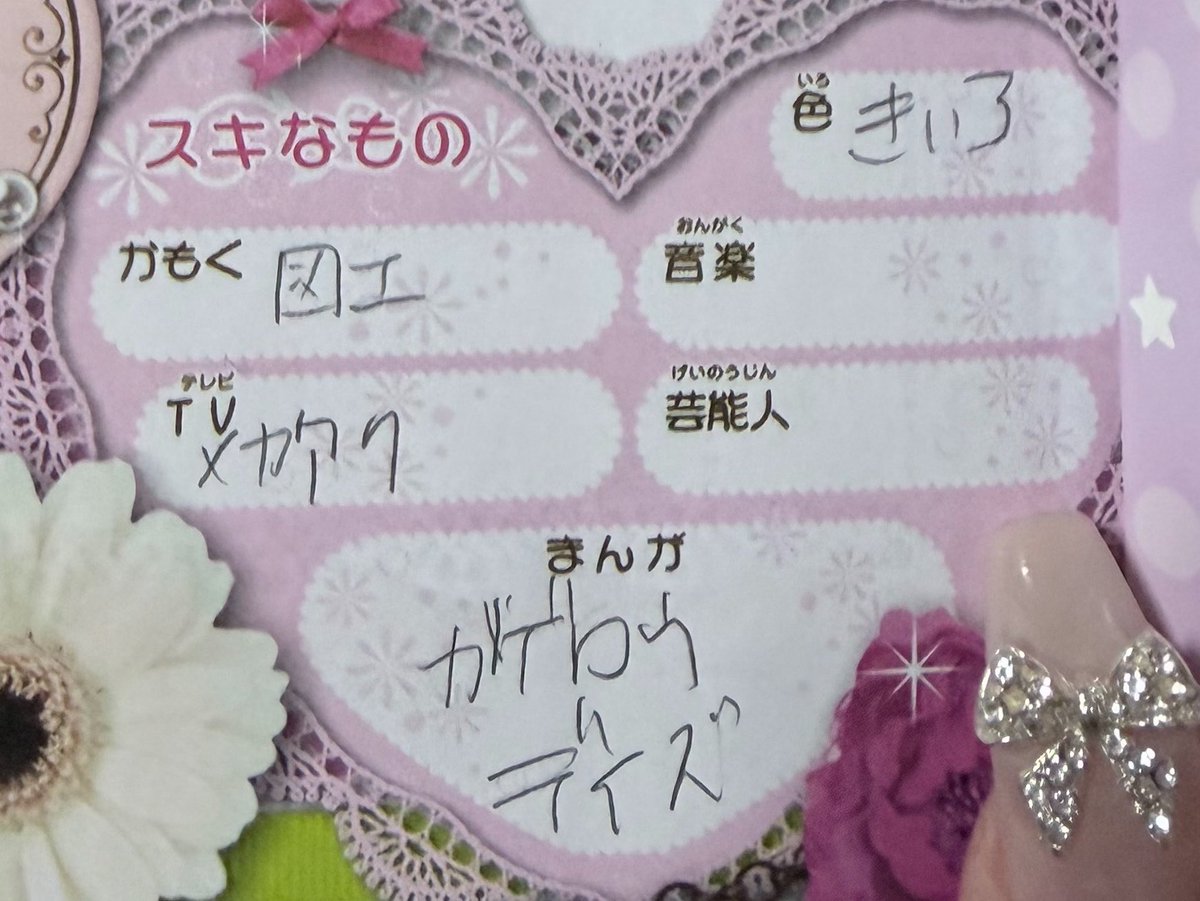 スキなもの
いろ
色 きいろ
かもく 図工
おんがく
音楽
テレビ
TV メカアク
げいのうじん
芸能人
まんが
カゲロウ
デイズ